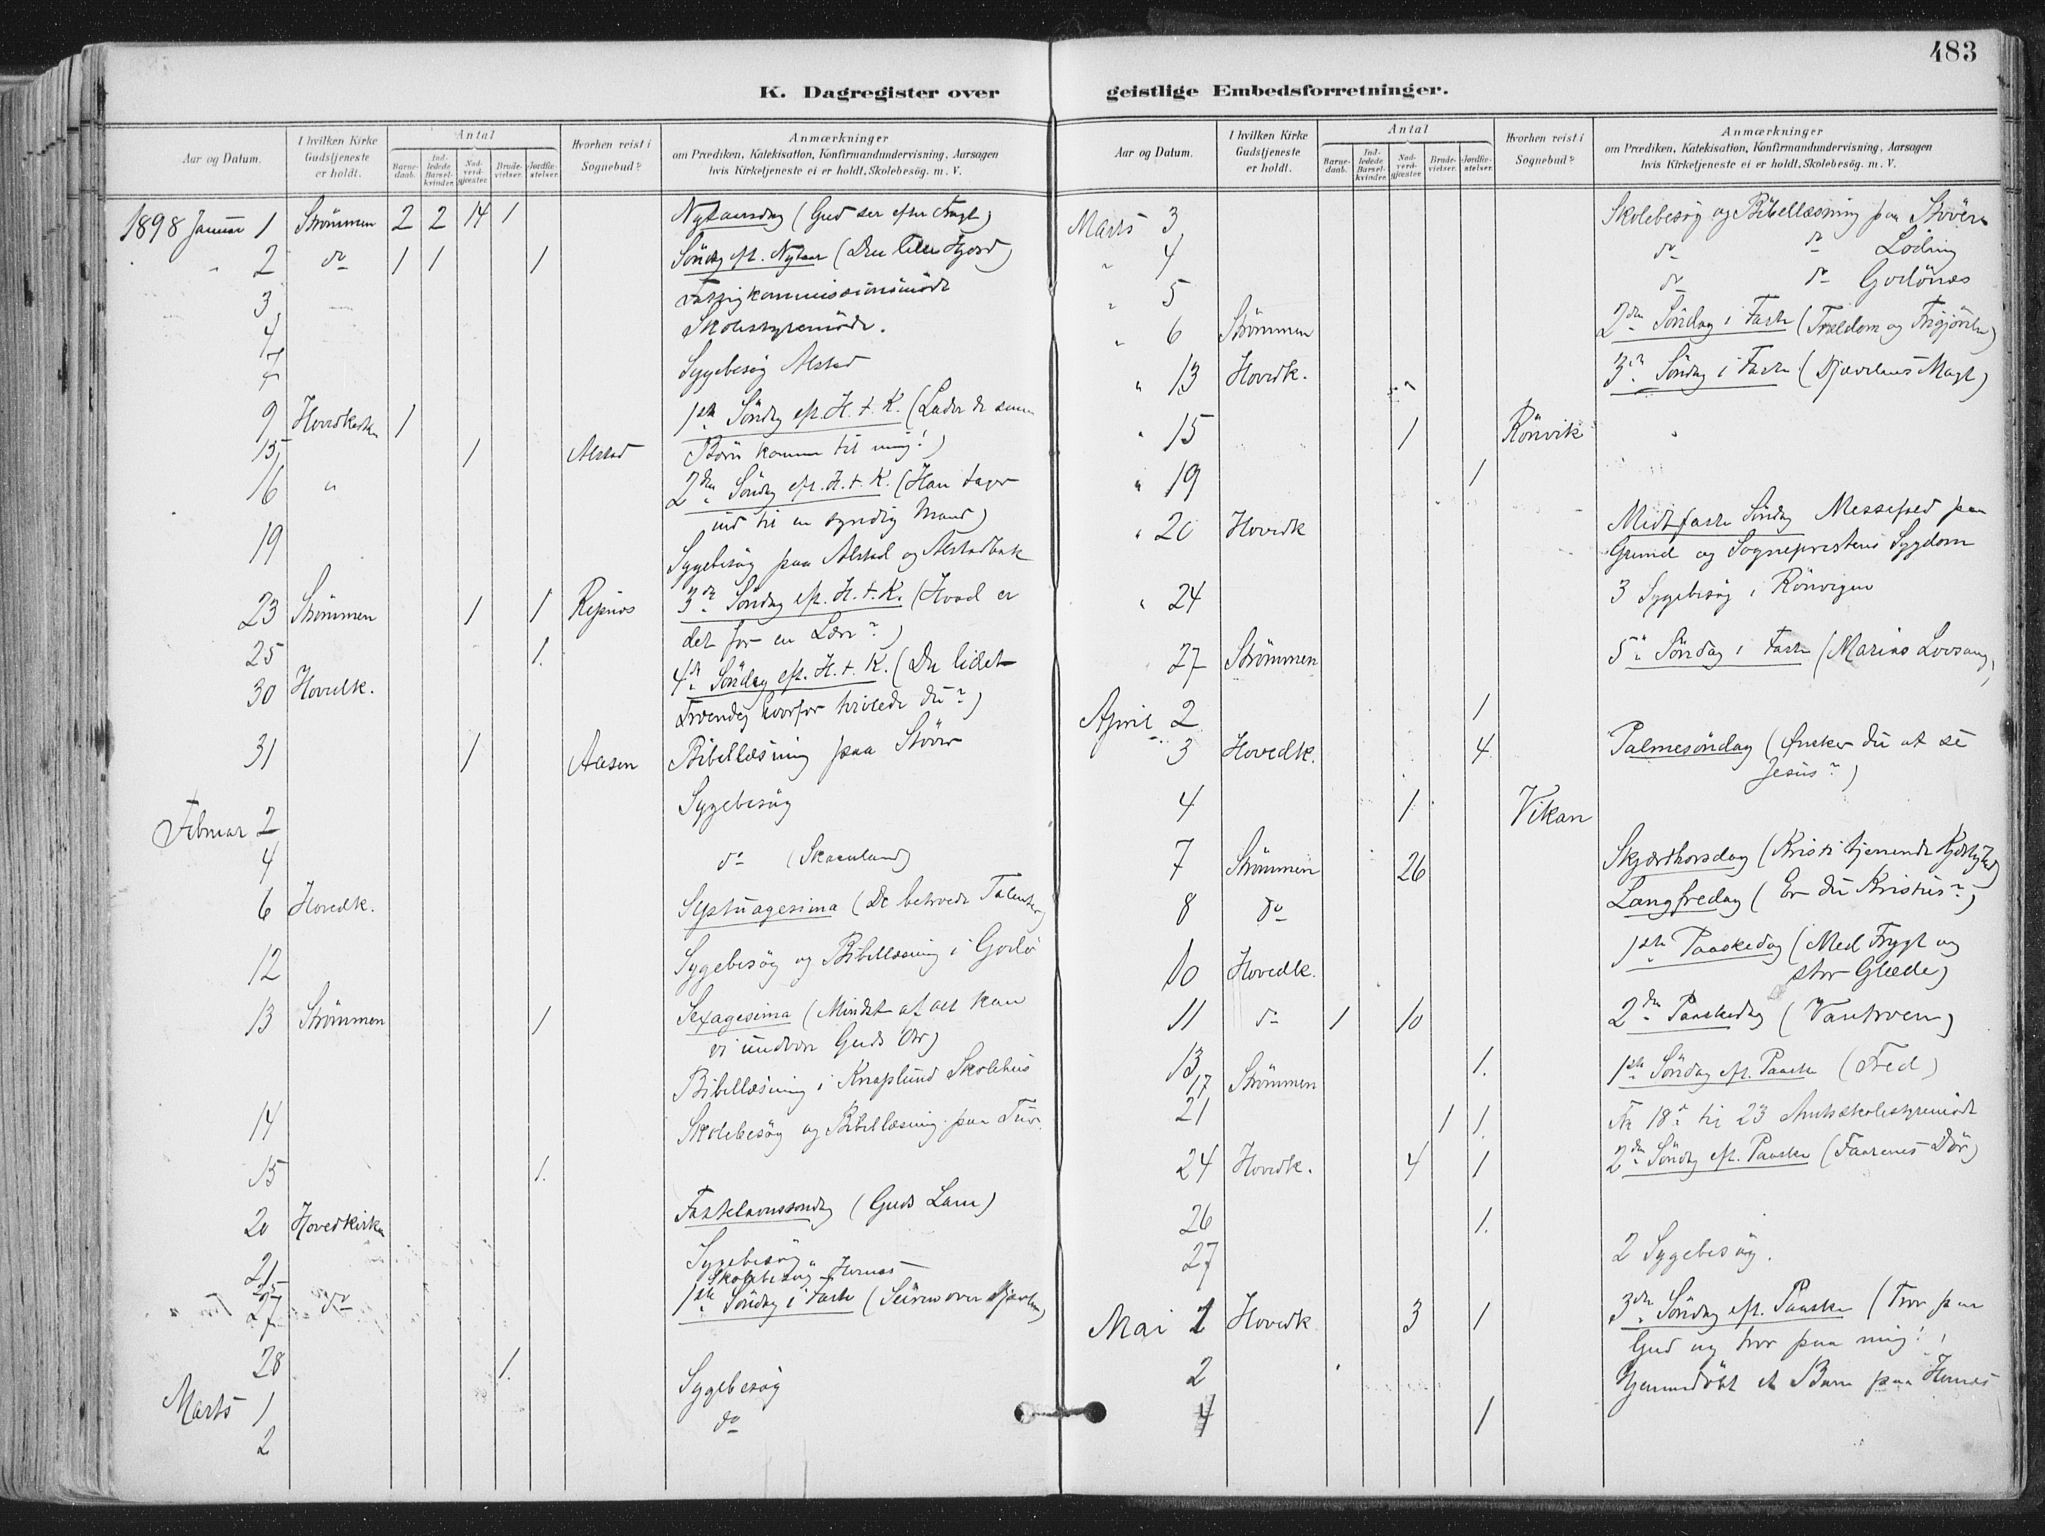 483
K. Dagregister over geistlige Embedsforretninger.
Aar og Datum.
I hvilken Kirke Gudstjeneste er holdt.
Antal
Barnedaab.
Indledede Barselkvinder.
Nadverdgjester.
Brudevielser.
Jordfæstelser.
Hvorhen reist i Sognebud?
Anmærkninger
om Prædiken, Katekisation, Konfirmandundervisning, Aarsagen
hvis Kirketjeneste ei er holdt, Skolebesög. m. V.
1898 Januar 1 Strömmen 2 2 14 1 Nytaarsdag (Gud ser efter Frugt)
" " 2 do 1 1 1 Söndag eft. Nytaar (Den lille Hjord)
3 Fattigkommissionsmöde
4 Skolestyremöde.
7 Sygebesög Alstad
9 Hovedkirken 1 1ste Söndag eft. H.t.K. (Lader de smaa
Börn komme til mig!)
15 1 Alstad
16 " 2den Söndag eft. H.t.K. (Han tager
ind til en syndig Mand)
19 Sygebesög paa Alstad og Alstadbak
23 Strömmen 1 1 Repnes 3die Söndag eft. H.t.K. (Hvad er
det for en Lære?)
25 1.
30 Hovedk. 4de Söndag eft. H.t.K. (Du lidet
Troende, hvorfor tvivlede du?)
31 1 Alesen Bibellæsning paa Stöver
Februar 2 Sygebesög
4 do (Skaanland)
6 Hovedk. Septuagesima (De betroede Talenter)
12 Sygebesög og Bibellæsning i Godö
13 Strömmen 1 Sexagesima (Mindst af alt kan
vi undvære Guds Ord)
Bibellæsning i Knaplund Skolehus
14 Skolebesög og Bibellæsning paa Tuv.
15 1.
20 Hovedkirken Fastelavnssöndag (Guds Lam)
21 Sygebesög
25 Skolebesög Hernes
27 do 1ste Söndag i Faste (Seiren over Djævelen)
28 1.
Marts 1 Sygebesög
2 do
Aar og Datum.
I hvilken Kirke Gudstjeneste er holdt.
Antal
Barnedaab.
Indledede Barselkvinder.
Nadverdgjester.
Brudevielser.
Jordfæstelser.
Hvorhen reist i Sognebud?
Anmærkninger
om Prædiken, Katekisation, Konfirmandundervisning, Aarsagen
hvis Kirketjeneste ei er holdt, Skolebesög. m. V.
Marts 3 Skolebesög og Bibellæsning paa Stöver
" 4 do do Löding
" 5 do do Godönes
" 6 Strömmen 2den Söndag i Faste (Trældom og Frigjörelse)
" 13 Hovedk. 3die Söndag i Faste (Djævelens Magt)
" 15 1 Rönvik
" 19 1
" 20 Hovedk Midtfaste Söndag Messefald paa
Grund og Sogneprestens Sygdom
" 24 3 Sygebesög i Rönvigen
27 Strömmen 5te Söndag i Faste (Marias Lovsang)
April 2 1
3 Hovedk. 4. Palmesöndag (Önsker du at se
Jesus?)
4 1 Vikan
7 Strömmen 26 Skjærthorsdag (Kristi tjenende Kjærlighed)
8 do Langfredag (Er du Kristus?)
10 Hovedk. 1ste Paaskedag (Med Frygt og
stor Glæde)
11 do 1 10 2den Paaskedag (Vantroen)
13 1.
17 Strömmen 1ste Söndag eft. Paaske (Fred)
21 1 1. Fra 18de til 23 Amtsskolestyremöde
24 Hovedk. 4 1 2den Söndag eft. Paaske (Faarenes Dör)
26 1.
27 2 Sygebesög.
Mai 1 Hovedk 3 1 3die Söndag eft. Paaske (Tror paa
Gud og tror paa mig!)
2 Hjemmedöbt et Barn paa Hernes
4 1